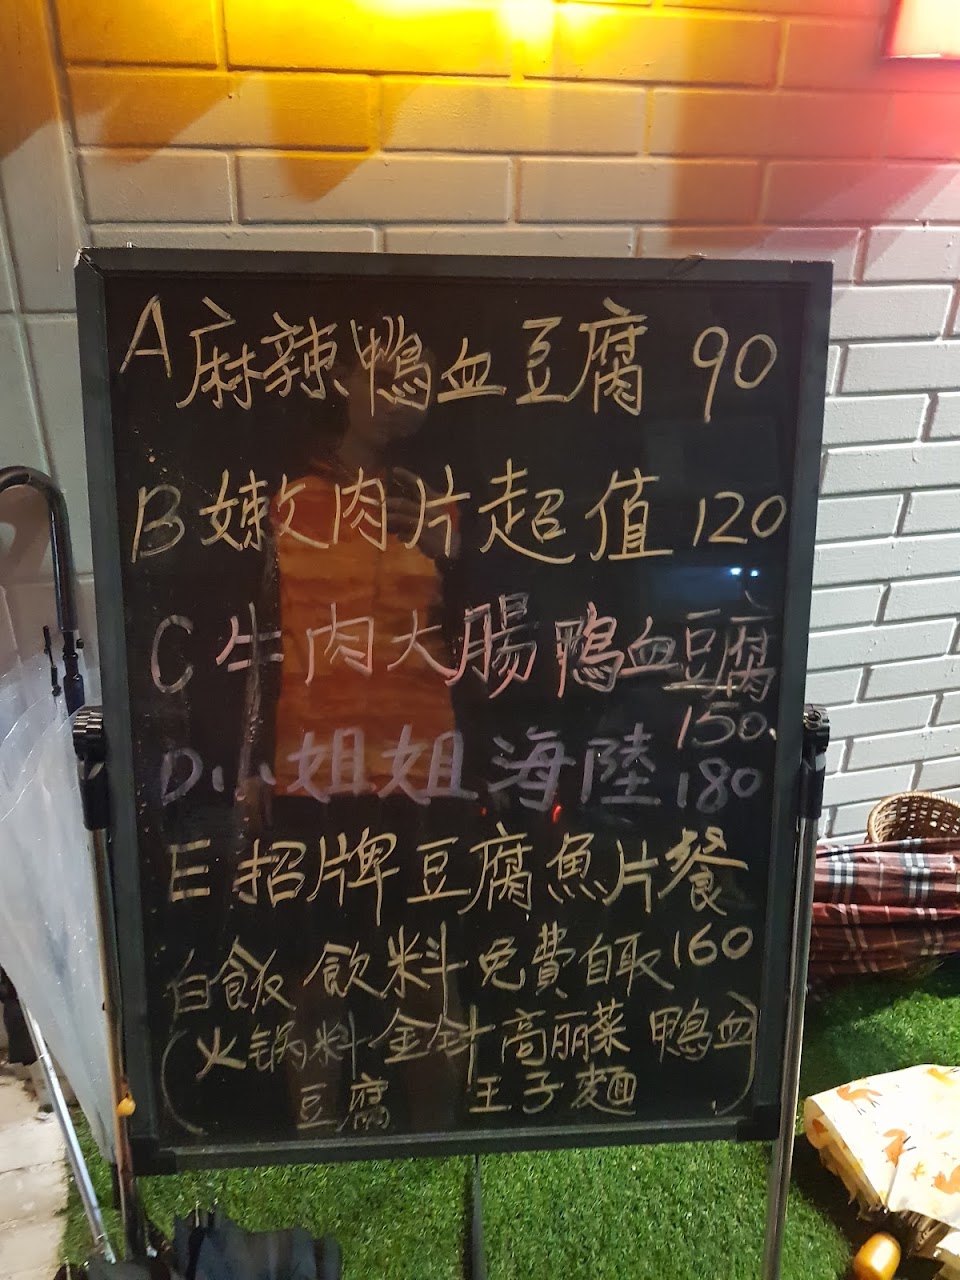 A 麻辣鴨血豆腐 90
B 嫩肉片超值 120
C 牛肉大腸鴨血豆腐
150.
D. 小姐姐海陸 180
E 招牌豆腐魚片餐
160
白飯 飲料 免費自取
(火锅料 金針 高丽菜 鴨血
豆腐 王子麵)